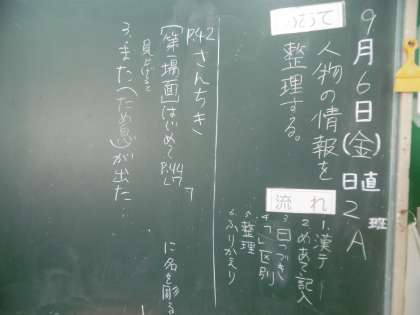 9月6日(金)
日直 2班 A
めあて
人物の情報を
整理する。
流れ
1.漢テー
2.めあて記入
3.日つづき
4.区別
5.整理
6.ふりかえり
P.42 さんちき
【第一場面】はじめ〜P.44 L7
に名を彫る
見上げて
3、また(ため息)が出た…